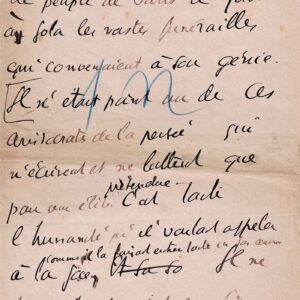 le peuple de Paris a fait
à Zola les vastes funérailles
qui convenaient à son génie.
[Il n'était point un de ces
aristocrates de la pensée qui
n'écrivent et ne luttent que
pour une élite prétendue. C'est toute
l'humanité qu'il voulait appeler
comme il la faisait entrer toute en son œuvre
à la joie, Il ne